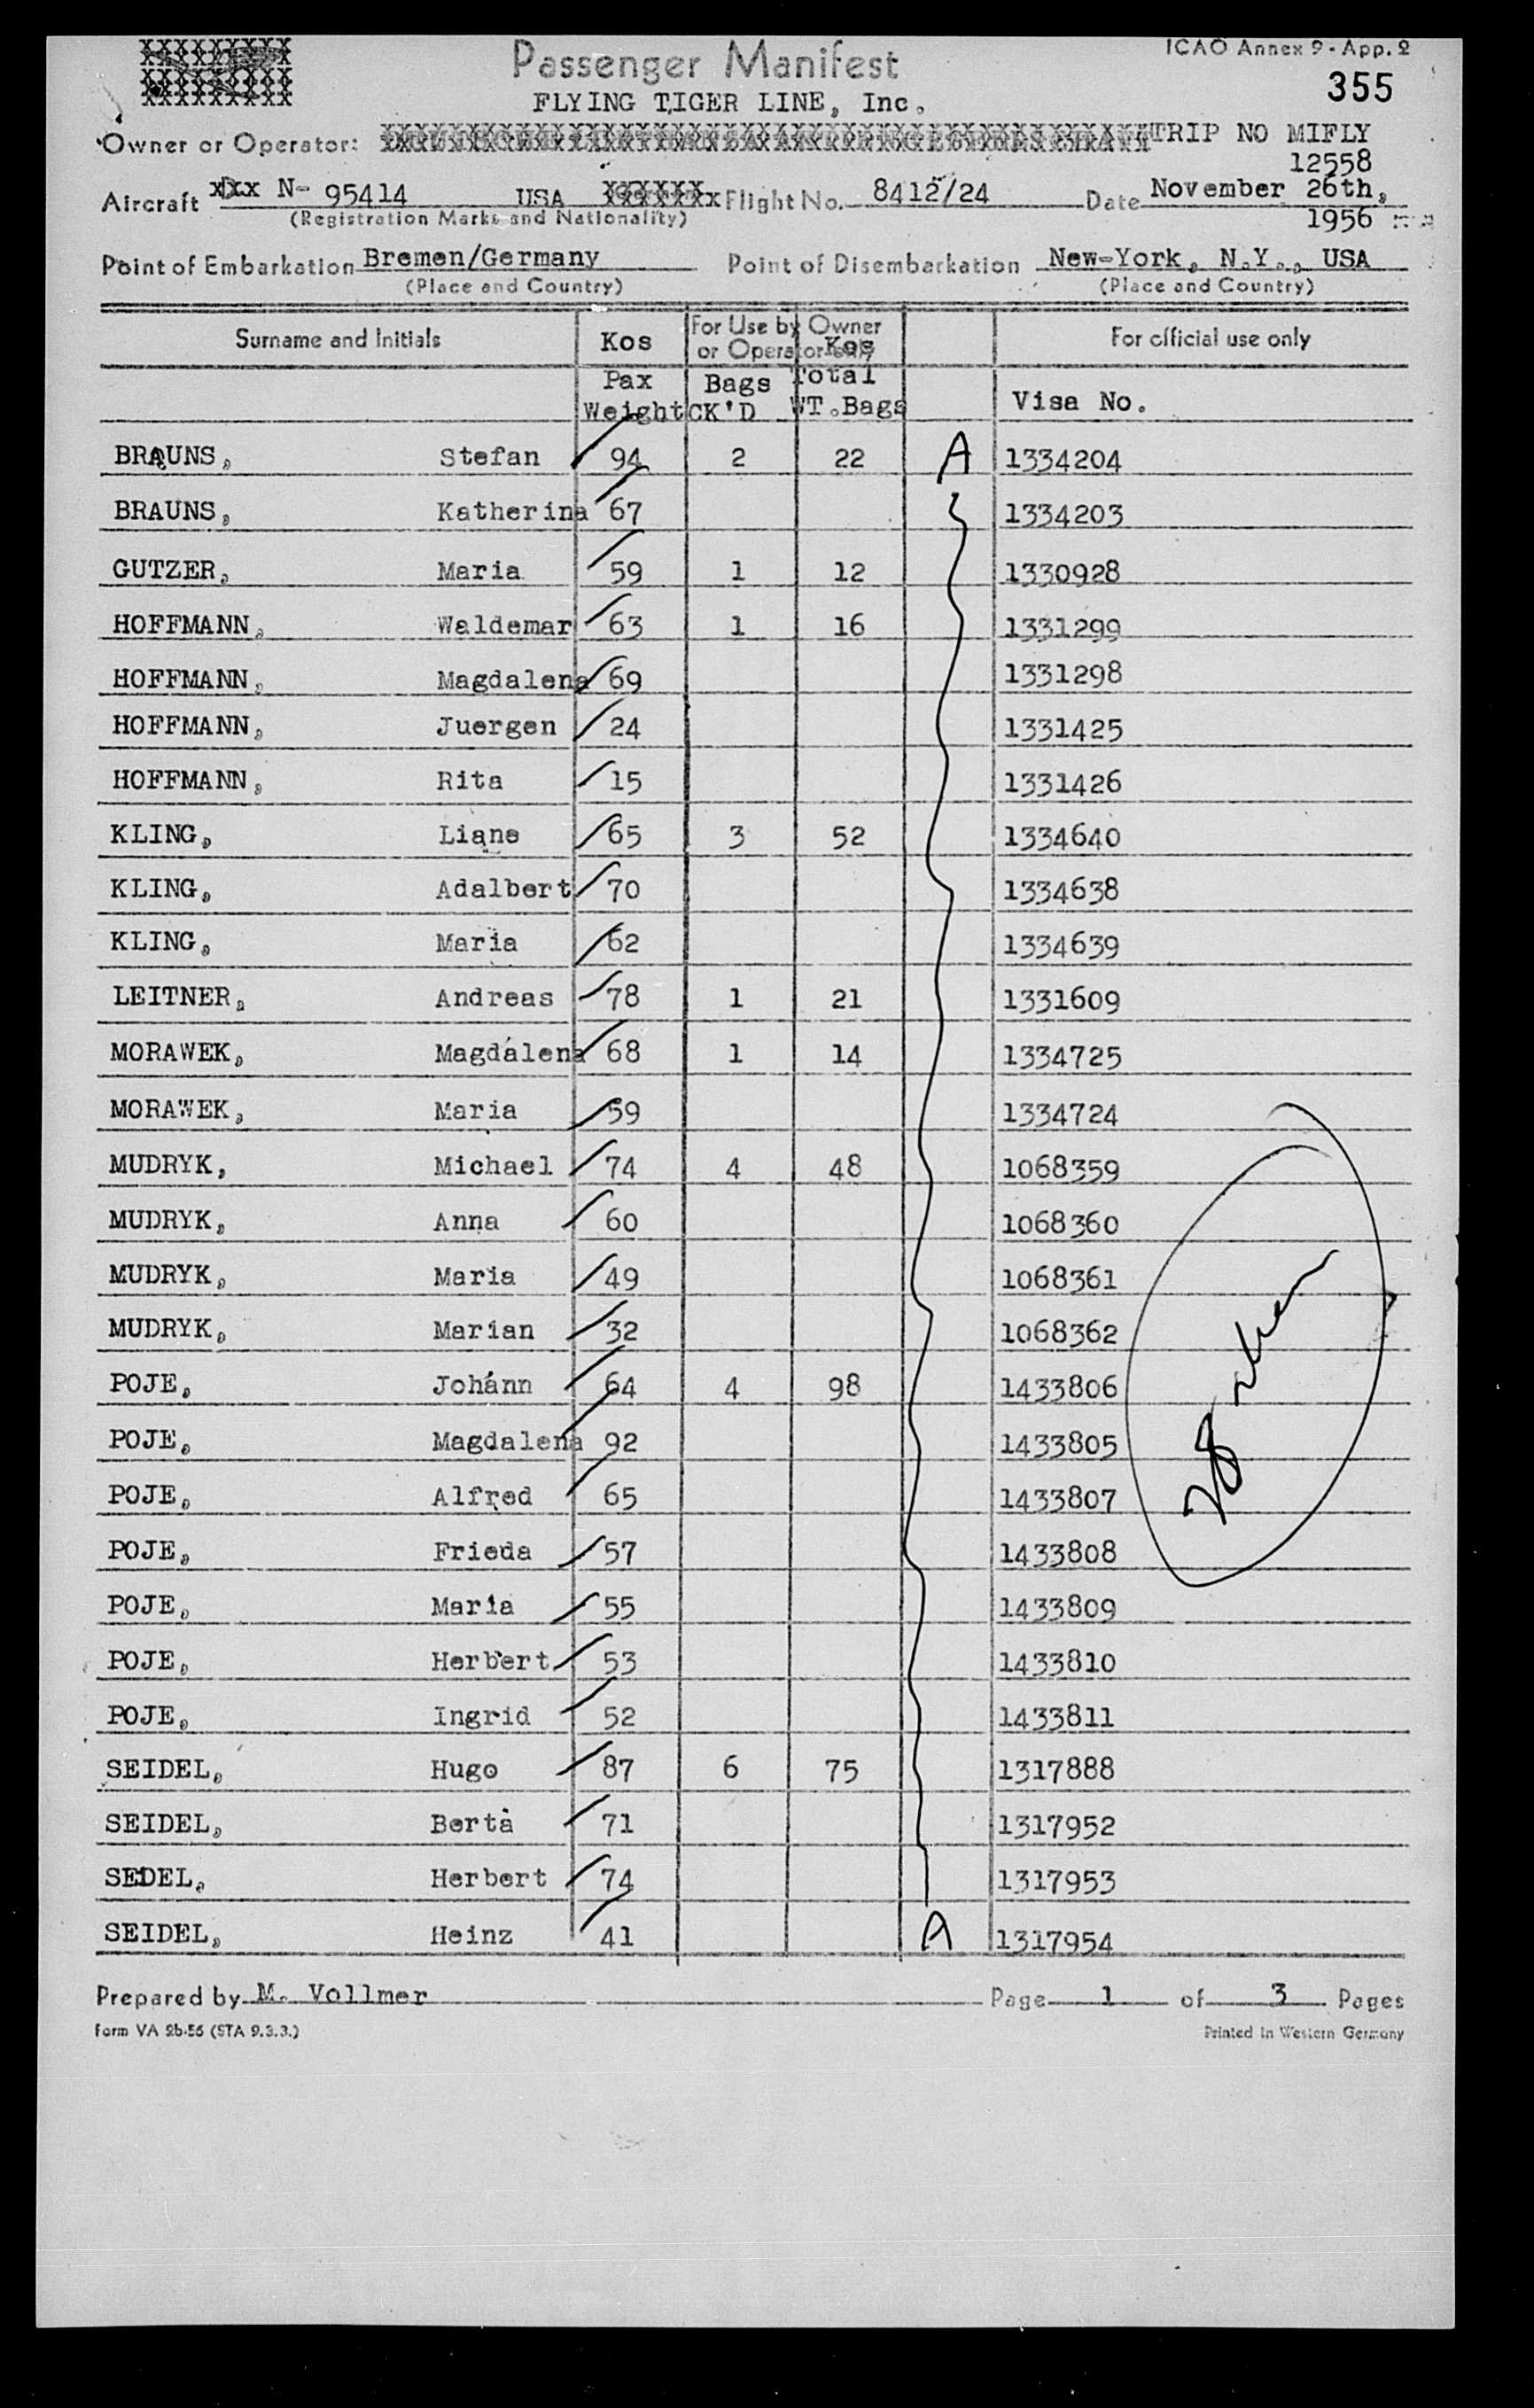 ICAO Annex 9 - App. 2
Passenger Manifest
355
FLYING TIGER LINE, Inc.
Owner or Operator: TRIP NO MIFLY
12558
Aircraft N- 95414 USA Flight No. 8412/24 Date November 26th,
(Registration Marks and Nationality) 1956
Point of Embarkation Bremen/Germany Point of Disembarkation New-York, N.Y., USA
(Place and Country) (Place and Country)
Surname and Initials Kos For Use by Owner or Operator only Kos For official use only
Pax Weight Bags CK'D Total WT.Bags Visa No.
BRAUNS, Stefan 94 2 22 A 1334204
BRAUNS, Katherina 67 1334203
GUTZER, Maria 59 1 12 1330928
HOFFMANN, Waldemar 63 1 16 1331299
HOFFMANN, Magdalena 69 1331298
HOFFMANN, Juergen 24 1331425
HOFFMANN, Rita 15 1331426
KLING, Liane 65 3 52 1334640
KLING, Adalbert 70 1334638
KLING, Maria 62 1334639
LEITNER, Andreas 78 1 21 1331609
MORAWEK, Magdalena 68 1 14 1334725
MORAWEK, Maria 59 1334724
MUDRYK, Michael 74 4 48 1068359
MUDRYK, Anna 60 1068360
MUDRYK, Maria 49 1068361
MUDRYK, Marian 32 1068362
POJE, Johann 64 4 98 1433806
POJE, Magdalena 92 1433805
POJE, Alfred 65 1433807
POJE, Frieda 57 1433808
POJE, Maria 55 1433809
POJE, Herbert 53 1433810
POJE, Ingrid 52 1433811
SEIDEL, Hugo 87 6 75 1317888
SEIDEL, Berta 71 1317952
SEDEL, Herbert 74 1317953
SEIDEL, Heinz 41 A 1317954
28
Prepared by M. Vollmer Page 1 of 3 Pages
Form VA 2b-56 (STA 9.3.3.) Printed in Western Germany